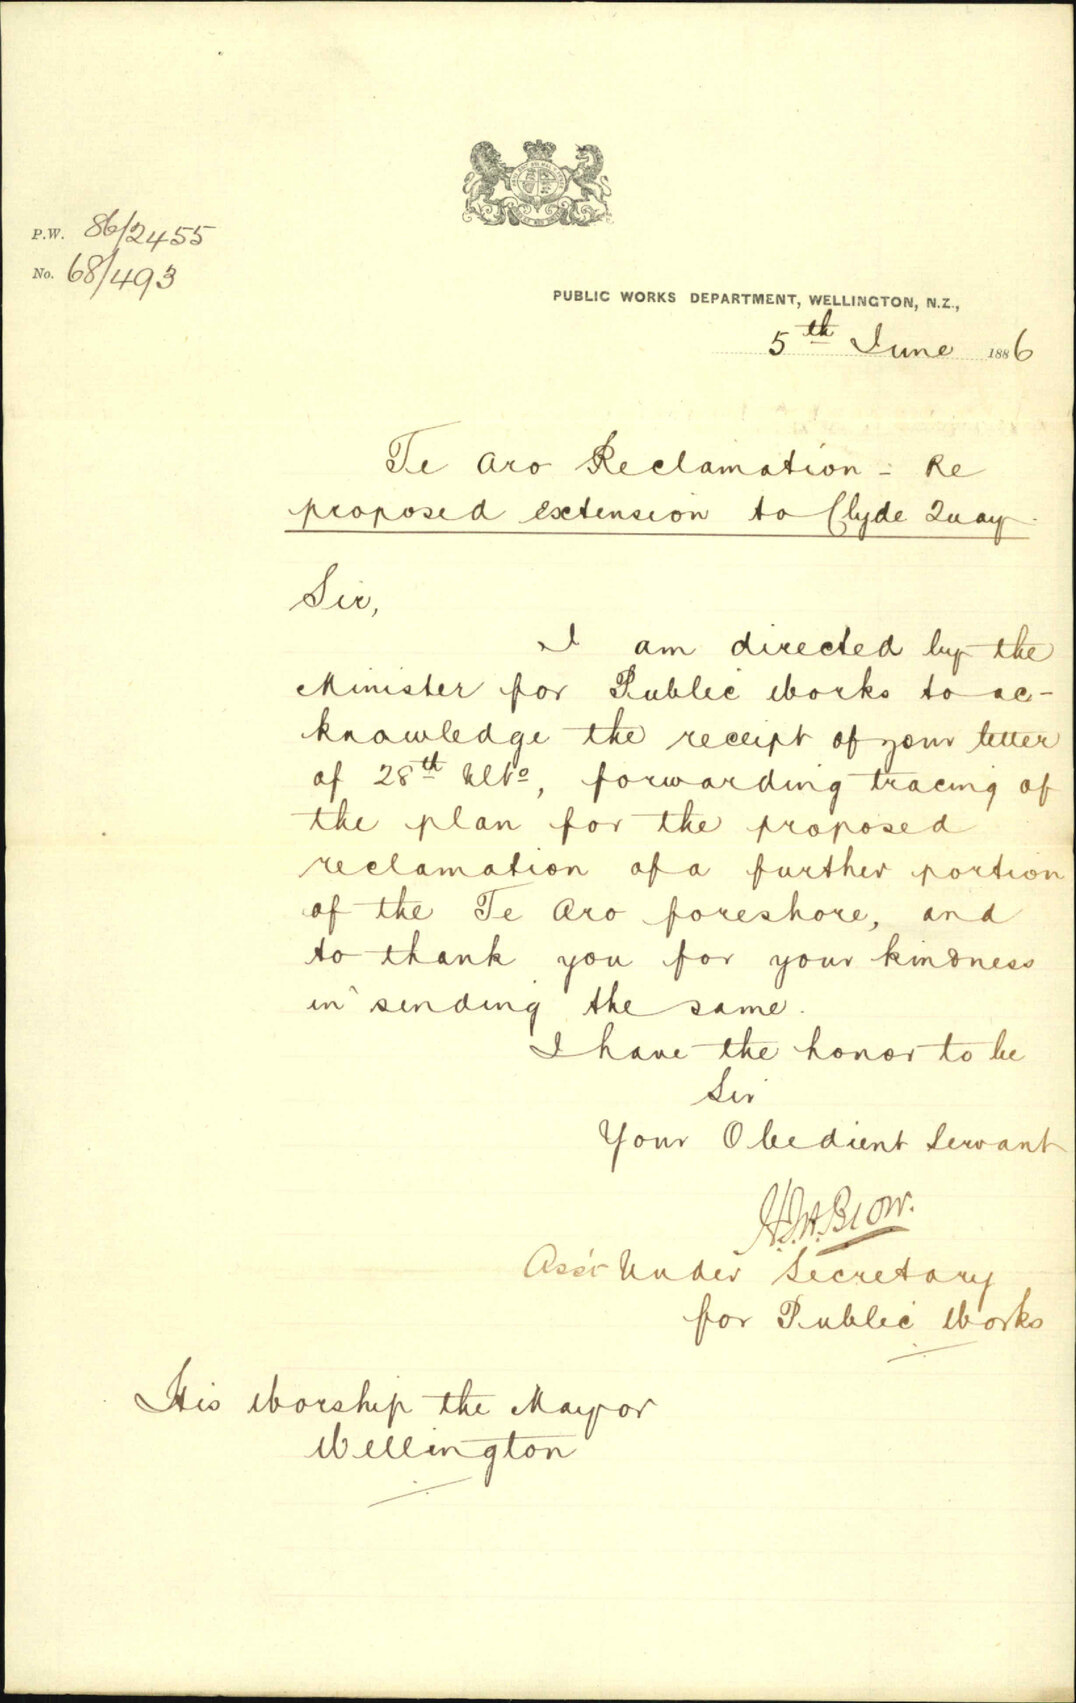 P.W. 86/2455
No. 68/493
PUBLIC WORKS DEPARTMENT, WELLINGTON, N.Z.,
5th June 1886
Te Aro Reclamation - Re
proposed extension to Clyde Quay.
Sir,
I am directed by the
Minister for Public Works to ac-
knowledge the receipt of your letter
of 28th Ulto, forwarding tracing of
the plan for the proposed
reclamation of a further portion
of the Te Aro foreshore, and
to thank you for your kindness
in sending the same.
I have the honor to be
Sir
Your Obedient Servant
H.J.H. Blow.
Asst Under Secretary
for Public Works
His Worship the Mayor
Wellington